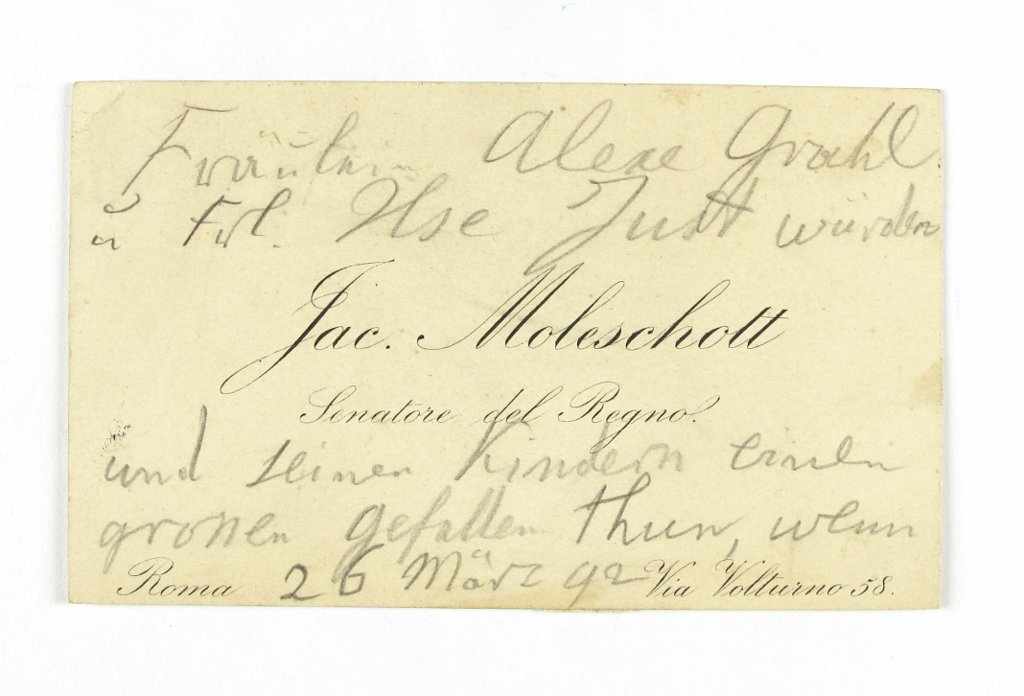 Fräulein Alexe Grahl
u Frl. Ilse Just würden
Jac. Moleschott
Senatore del Regno.
und seinen Kindern einen
grossen Gefallen thun, wenn
Roma 26 März 92 Via Volturno 58.